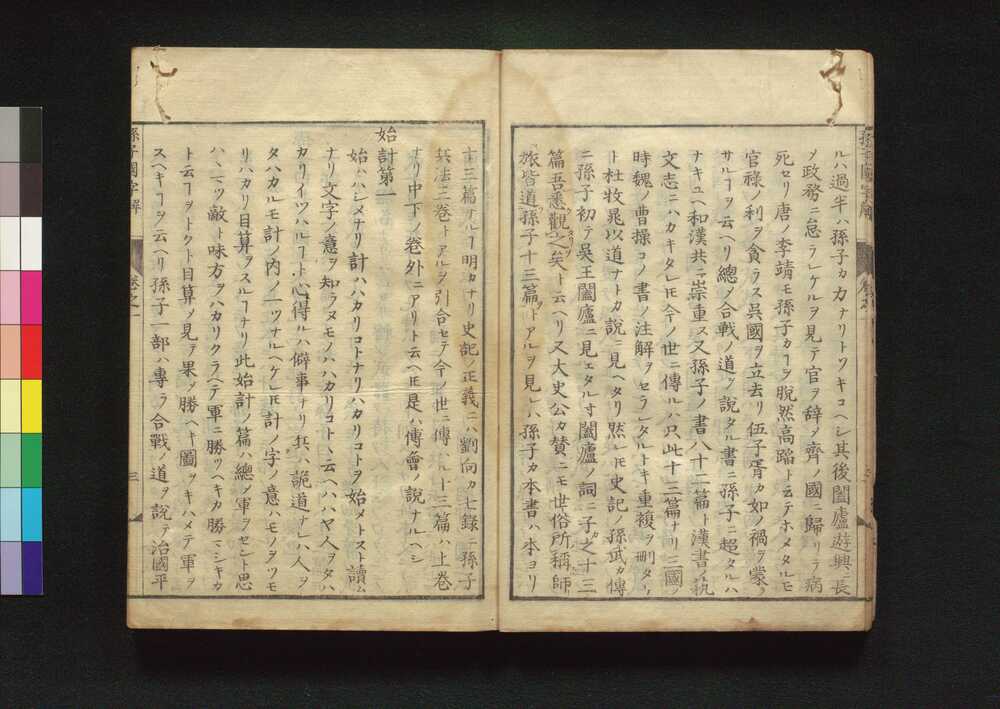 孫子國字解
ルハ過半ハ孫子カ力ナリトソキコヘシ其後闔廬遊興ニ長
メ政務ニ怠ラレケルヲ見テ官ヲ辞メ齊ノ國ニ歸リテ病
死セリ唐ノ李靖モ孫子カヿヲ脱然高蹈ト云テホメタルモ
官祿ノ利ヲ貪ラス呉國ヲ立去リ伍子胥カ如ノ禍ヲ蒙ラ
サルヿヲ云ヘリ總メ合戦ノ道ヲ說タル書ニ孫子ニ超タルハ
ナキユヘ和漢共ニ崇重ス又孫子ノ書八十二篇ト漢書ノ藝
文志ニハカキタレ𪜈今ノ世ニ傳ルハ只此十三篇ナリ三國ノ
時魏ノ曹操コノ書ノ注解ヲセラレタルトキ重複ヲ刪タリ
ト杜牧晁以道ナトカ說ニ見ヘタリ然レ𪜈史記ノ孫武カ傳
ニ孫子初テ呉王闔廬ニ見ヱタル寸闔廬ノ詞ニ子之十三
篇吾悉觀之矣ト云ヘリ又大史公カ賛ニモ世俗所稱師
旅皆道孫子十三篇トアルヲ見レハ孫子カ本書ハ本ヨリ
十三篇ナルヿ明カナリ史記ノ正義ニハ劉向カ七録ニ孫子
兵法三卷トアルヲ引合セテ今ノ世ニ傳ハル十三篇ハ上卷
ナリ中下ノ卷外ニアリト云ヘ𪜈是ハ傳會ノ說ナルヘシ
始計第一
始ハハシメナリ計ハハカリコトナリハカリコトヲ始メトスト讀ム
ナリ文字ノ意ヲ知ラヌモノハハカリコトト云ヘハハヤ人ヲタハ
カリイツハルヿト心得ルハ僻事ナリ兵ハ詭道ナレハ人ヲ
タハカルモ計ノ内ノ一ツナルヘケレ𪜈計ノ字ノ意ハモノヲツモ
リハカリ目算ヲスルヿナリ此始計ノ篇ハ總メ軍ヲセント思
ハヽマツ敵ト味方ヲハカリクラヘテ軍ニ勝ツヘキカ勝マシキカ
ト云ヿヲトクト目算メ見テ果メ勝ヘキ圖ヲキハメテ軍ヲ
スヘキヿヲ云ヘリ孫子一部ハ專ラ合戦ノ道ヲ說テ治國平
孫子國字解
卷之一
三